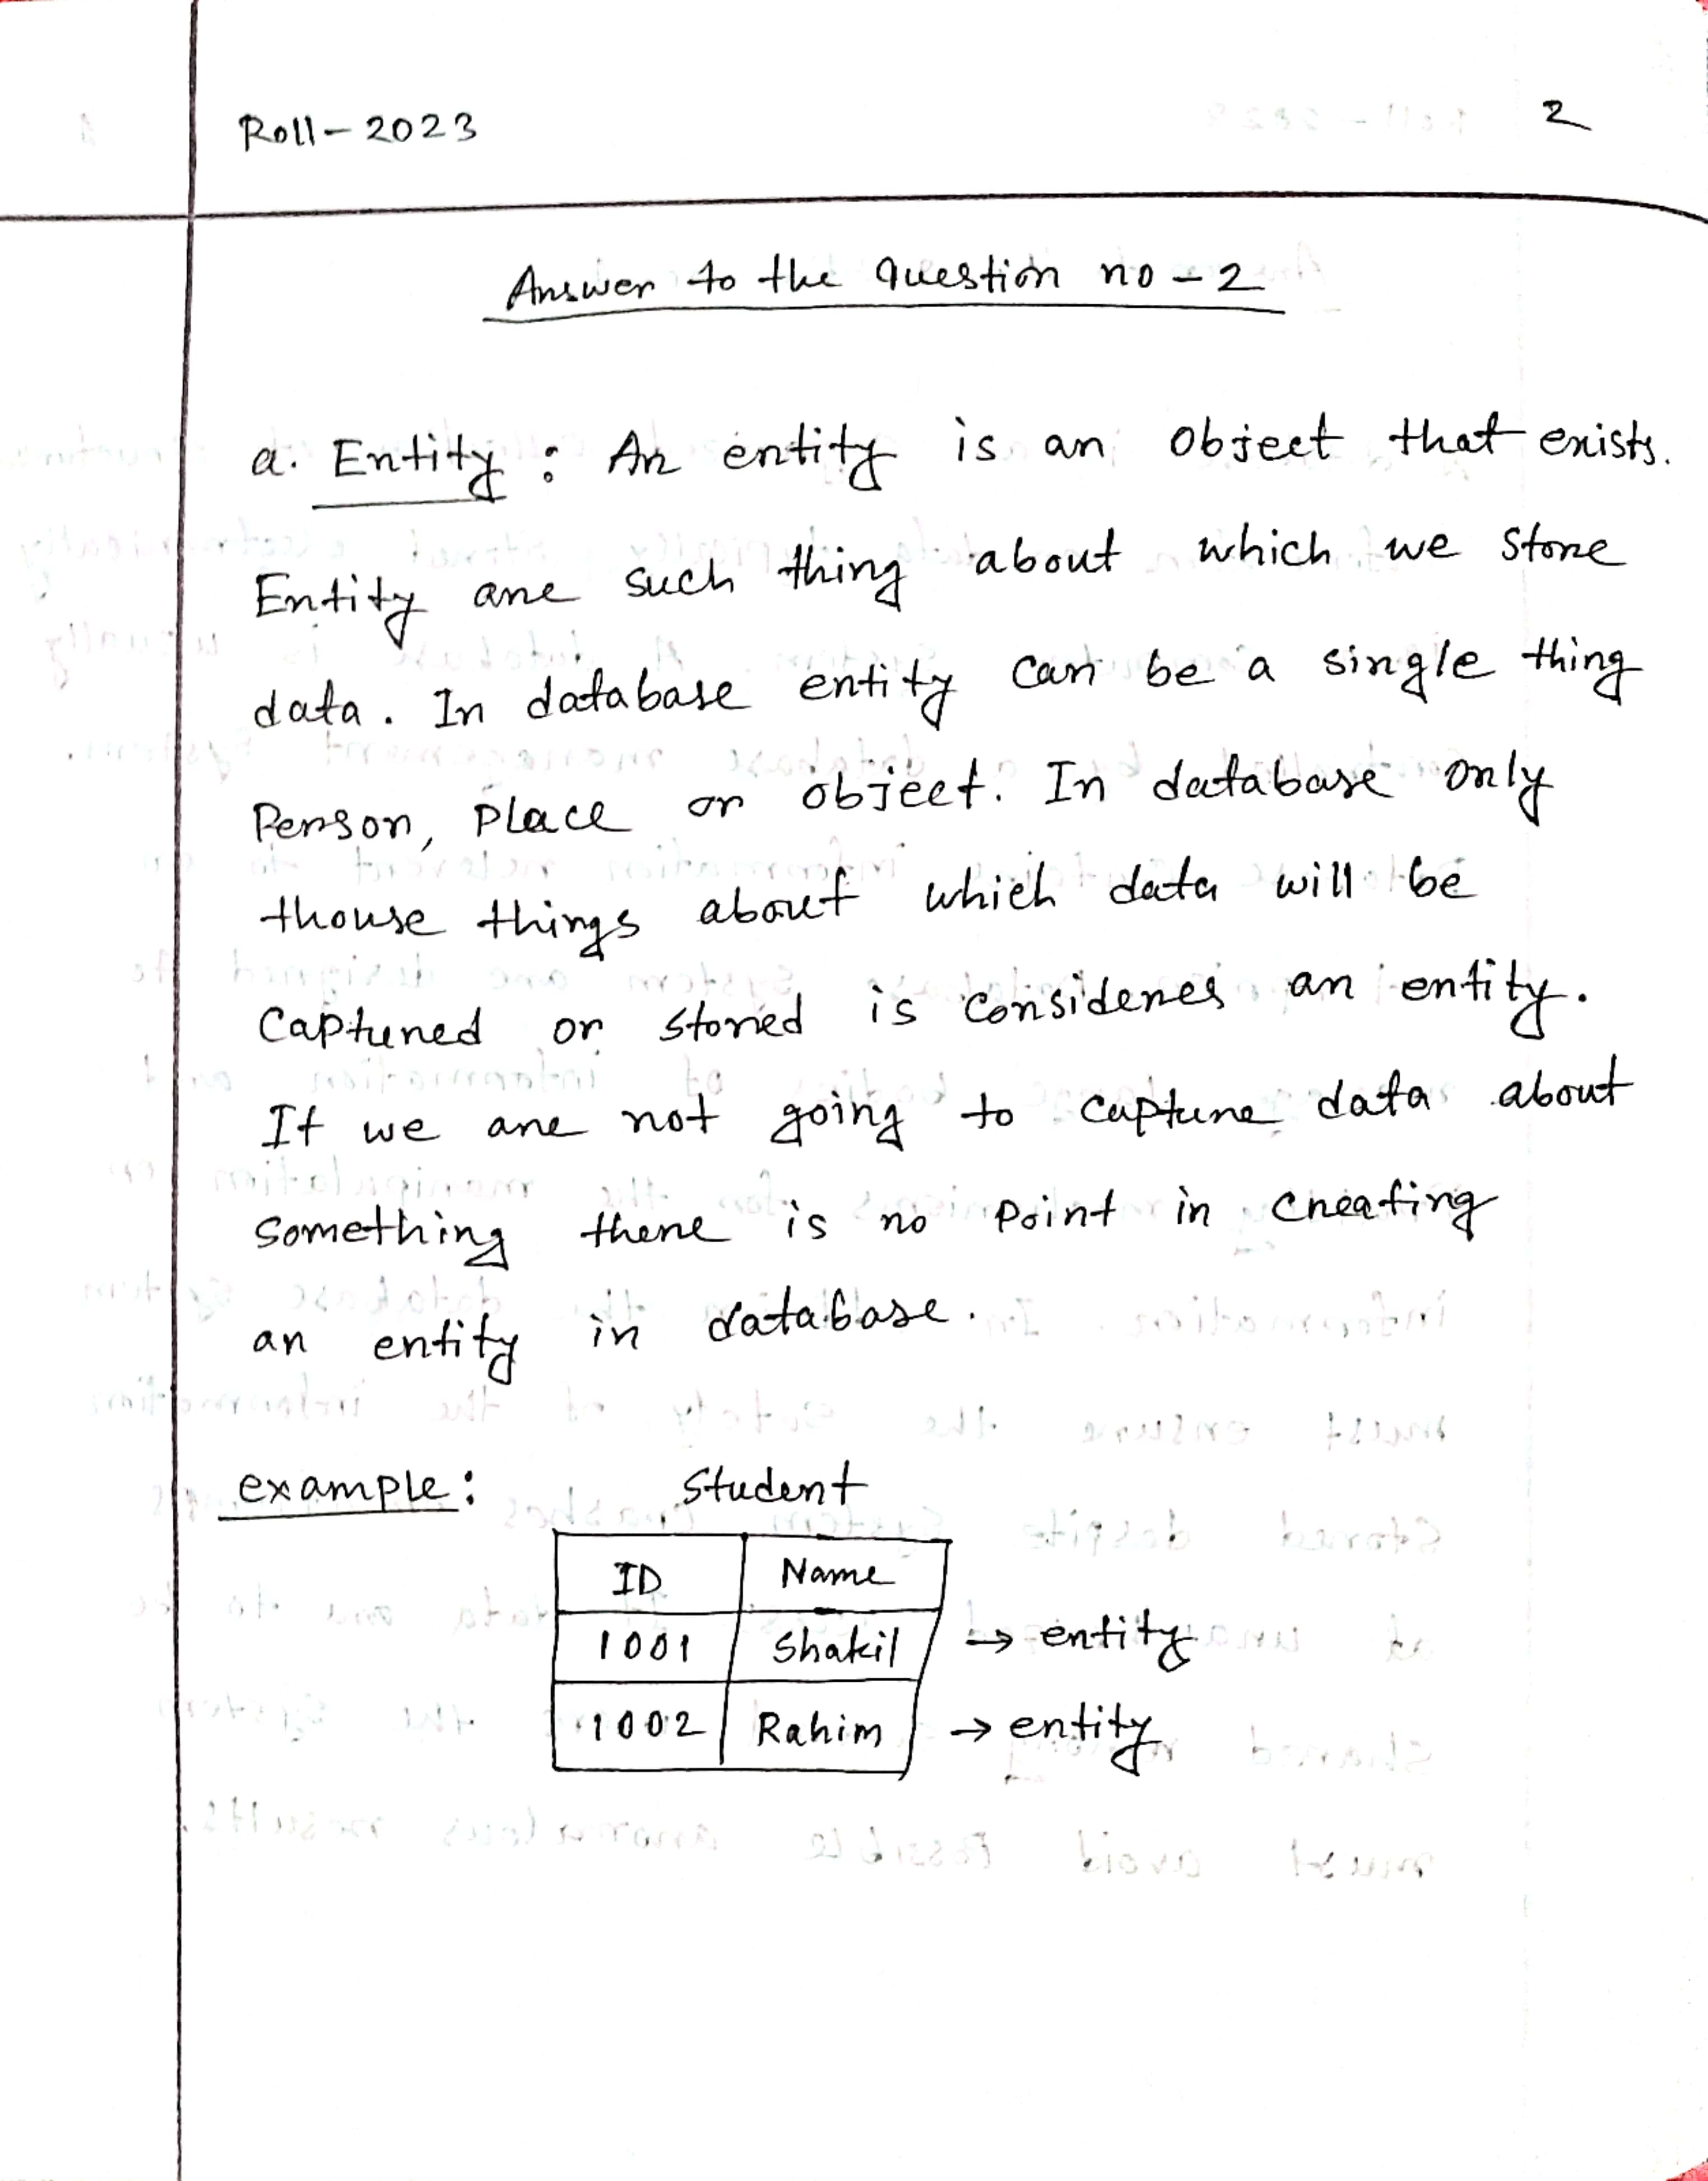 Roll-2023
2
Answer to the question no-2
a. Entity: An entity is an object that exists.
Entity are such thing about which we store
data. In database entity can be a single thing
Person, Place or object. In database only
thouse things about which data will be
Captured or stored is consideres an entity.
If we are not going to capture data about
something there is no point in creating
an entity in database.
example: Student
ID Name
1001 Shakil → entity
1002 Rahim → entity